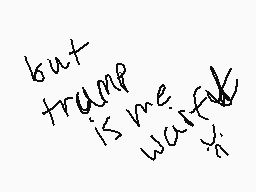 but
tramp
is me
waifu